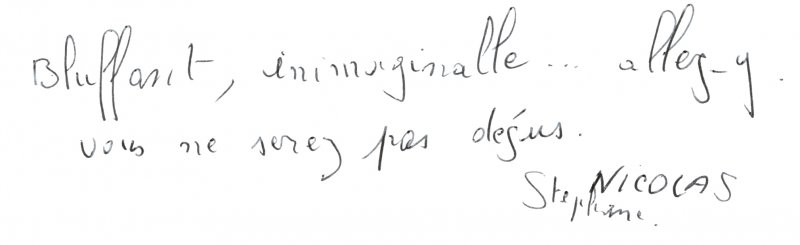 Bluffant, inimaginalle... allez-y.
vous ne serez pas déçus.
NICOLAS
Stephane.